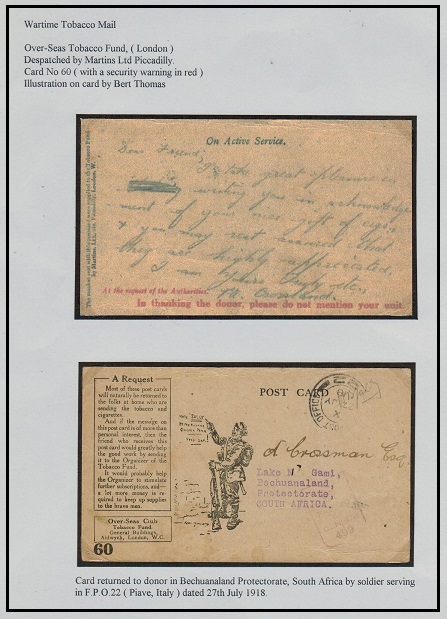 Wartime Tobacco Mail
Over-Seas Tobacco Fund, ( London )
Despatched by Martins Ltd Piccadilly.
Card No 60 ( with a security warning in red )
Illustration on card by Bert Thomas
On Active Service.
Dear Friend,
I take great pleasure in
writing you in acknowledge
ment of your nice gift of cigs.
& you may rest assured that
they are highly appreciated,
I am Yours
At the request of the Authorities.
In thanking the donor, please do not mention your unit.
A Request
Most of these post cards
will naturally be returned to
the folks at home who are
sending the tobacco and
cigarettes.
And if the message on
this post card is of more than
personal interest, then the
friend who receives this
post card would greatly help
the good work by sending
it to the Organizer of the
Tobacco Fund.
It would probably help
the Organizer to stimulate
further subscriptions, and—
a lot more money is re-
quired to keep up supplies
to the brave men.
Over-Seas Club
Tobacco Fund.
General Buildings,
Aldwych, London, W.C.
60
POST CARD
A. Crossman Esq
Lake N'Gami,
Bechunnaland,
Protectorate,
SOUTH AFRICA.
Card returned to donor in Bechuanaland Protectorate, South Africa by soldier serving
in F.P.O.22 ( Piave, Italy ) dated 27th July 1918.